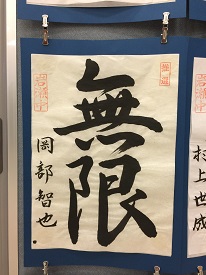 無限
岡部智也
村上世成